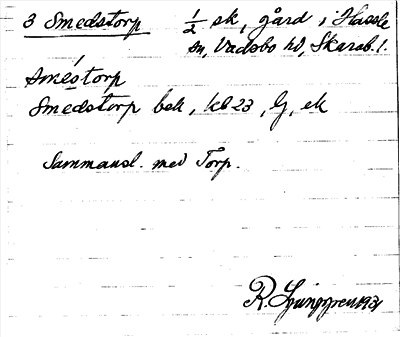 3 Smedstorp ½ sk, gård i Hassle
sn, Vadsbo hd, Skarab. l.
smèstorp
Smedstorp bek, kb 23, G, ek
Sammansl. med Torp.
R. Ljunggren 1931